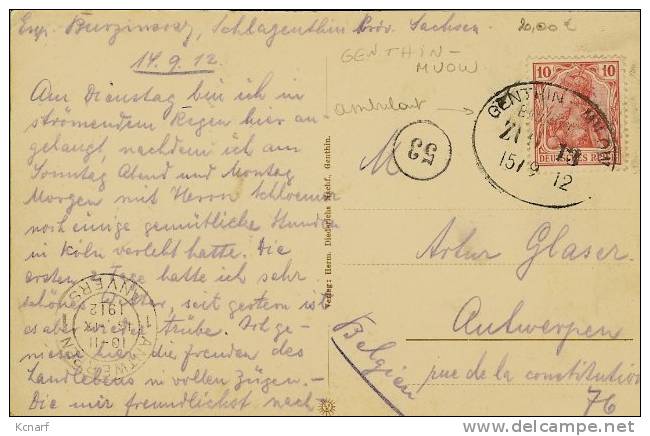 Schlagenthin Prov. Sachsen
20,00 €
14.9.12.
GENTHIN-
MUOW
ambulant
Am Dienstag bin ich in
strömendem Regen hier an-
gelangt, nachdem ich am
Sonntag Abend und Montag
Morgen mit Herrn
noch einige gemütliche Stunden
in Köln verlebt hatte. Die
ersten 2 Tage hatte ich sehr
schönes Wetter, seit gestern ist
es aber wieder trübe. Ich ge-
niesse hier die Freuden des
Landlebens in vollen Zügen.-
Die mir freundlichst nach-
10 10
DEUTSCHES REICH
GENTHIN MILOW
15/9 12
53
M
Artur Glaser.
Antwerpen
rue de la constitution
76
Belgien
Verlag: Herm. Diederichs Nachf., Genthin.
ANTWERPEN
ANVERS
1912
© Kcnarf
delcampe.net